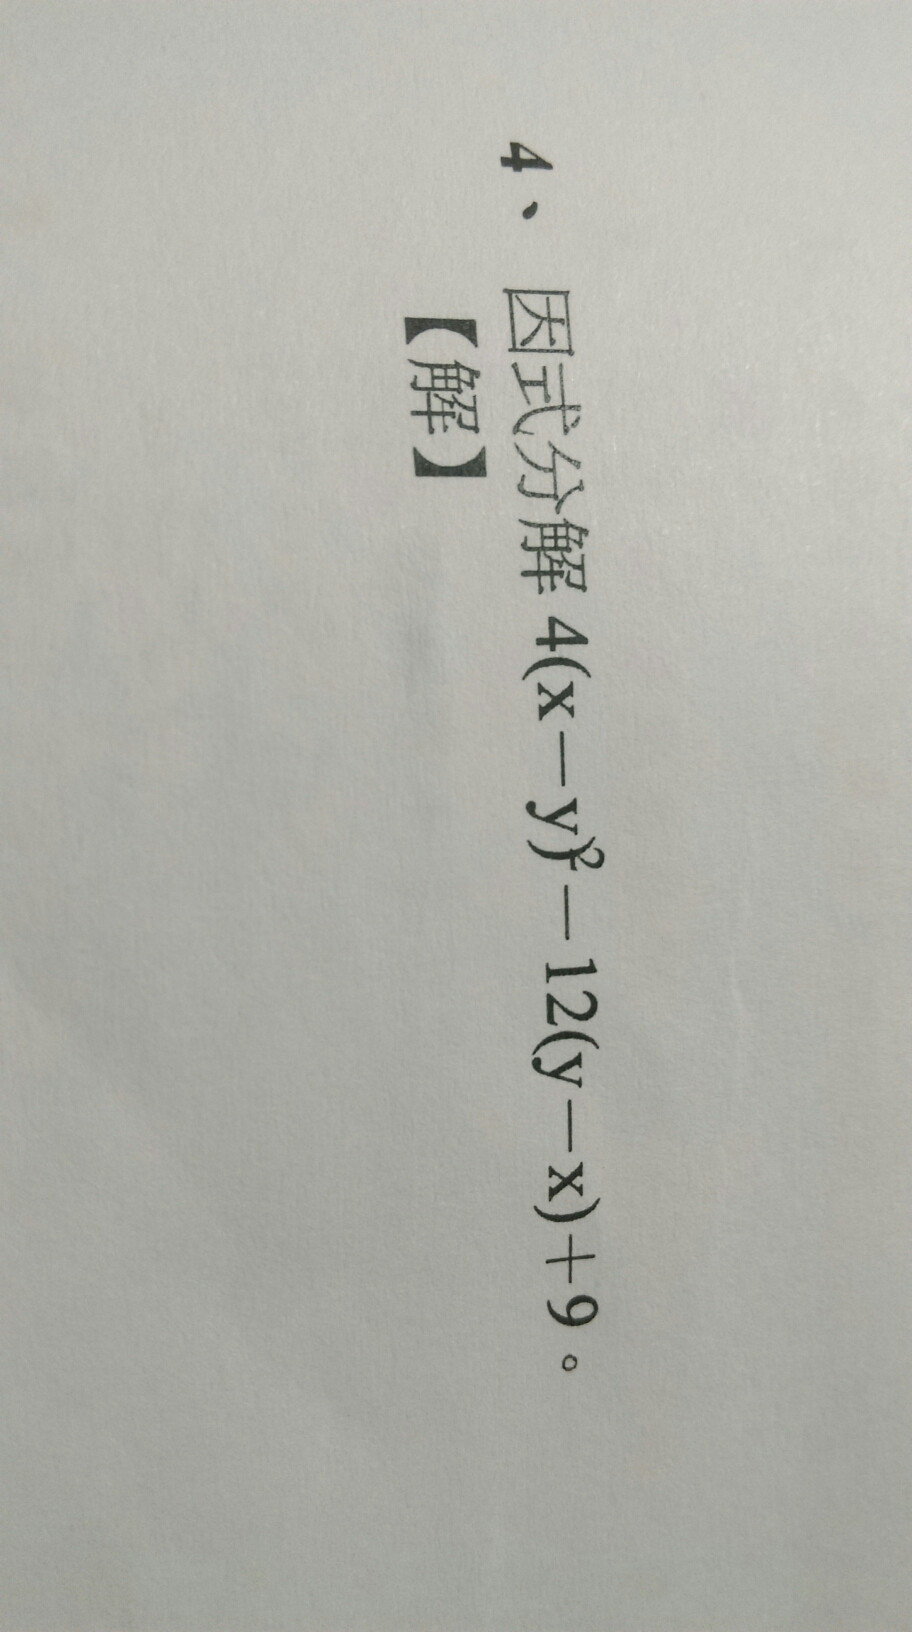 4、因式分解 4(x－y)²－12(y－x)＋9。
【解】